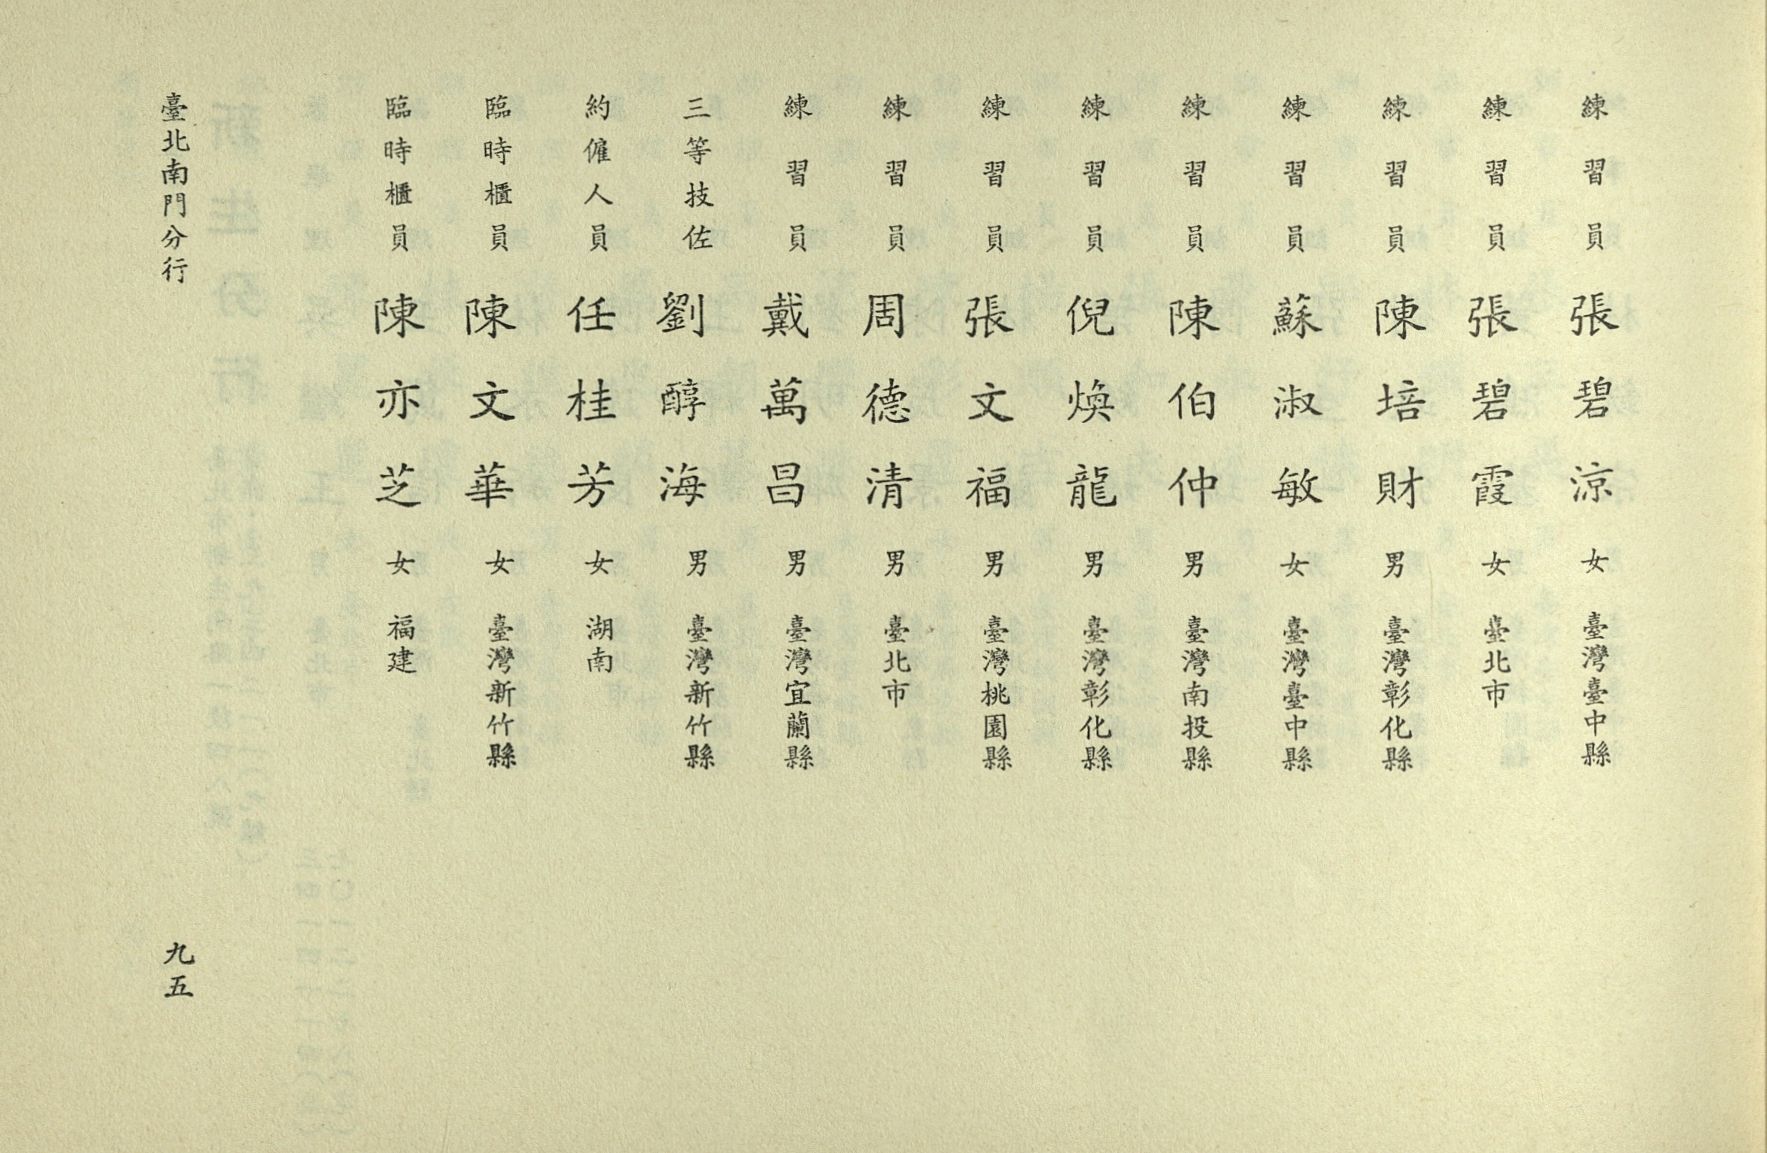 練習員 張碧涼 女 臺灣臺中縣
練習員 張碧霞 女 臺北市
練習員 陳培財 男 臺灣彰化縣
練習員 蘇淑敏 女 臺灣臺中縣
練習員 陳伯仲 男 臺灣南投縣
練習員 倪煥龍 男 臺灣彰化縣
練習員 張文福 男 臺灣桃園縣
練習員 周德清 男 臺北市
練習員 戴萬昌 男 臺灣宜蘭縣
三等技佐 劉醇海 男 臺灣新竹縣
約僱人員 任桂芳 女 湖南
臨時櫃員 陳文華 女 臺灣新竹縣
臨時櫃員 陳亦芝 女 福建
臺北南門分行
九五